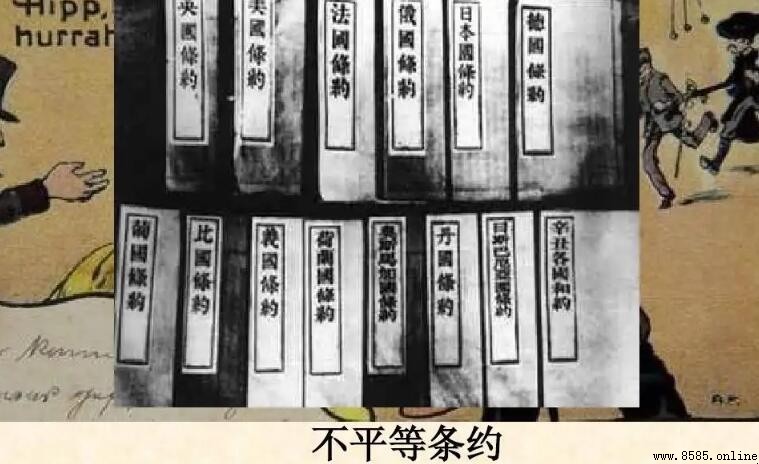 Hipp,
hurrah
英國條約
美國條約
法國條約
俄國條約
日本國條約
德國條約
葡國條約
比國條約
義國條約
荷蘭國條約
奧斯馬加國條約
丹國條約
日斯巴尼亞國條約
辛丑各國和約
不平等条约
www.8585.online